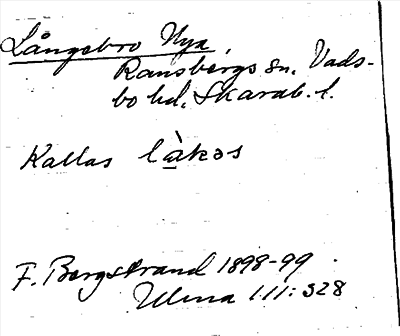 Långebro Nya,
Ransbergs sn. Vads-
bo hd, Skarab. l.
Kallas là̱kəs
F. Bergstrand 1898-99.
Ulma 111:328